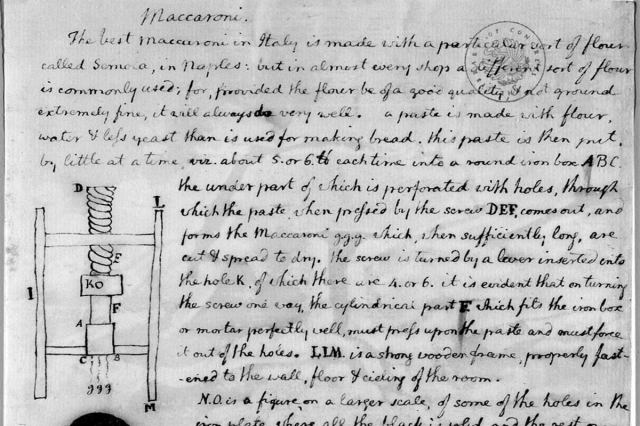 Maccaroni.
The best maccaroni in Italy is made with a particular sort of flour
called Semola, in Naples: but in almost every shop a different sort of flour
is commonly used; for, provided the flour be of a good quality & not ground
extremely fine, it will always do very well. a paste is made with flour,
water & less yeast than is used for making bread. this paste is then put,
by little at a time, viz. about 5. or 6. lb each time into a round iron box ABC.
the under part of which is perforated with holes, through
which the paste, when pressed by the screw DEF, comes out, and
forms the Maccaroni g.g.g. which, when sufficiently long, are
cut & spread to dry. the screw is turned by a lever inserted into
the hole K. of which there are 4. or 6. it is evident that on turning
the screw one way, the cylindrical part F. which fits the iron box
or mortar perfectly well, must press upon the paste and must force
it out of the holes. LLM. is a strong wooden frame, properly fast-
-ened to the wall, floor & cieling of the room.
N.O. is a figure on a larger scale, of some of the holes in the
iron plate, where all the black is solid, and the rest
D
L
E
KO
I
F
A
C
B
ggg
M